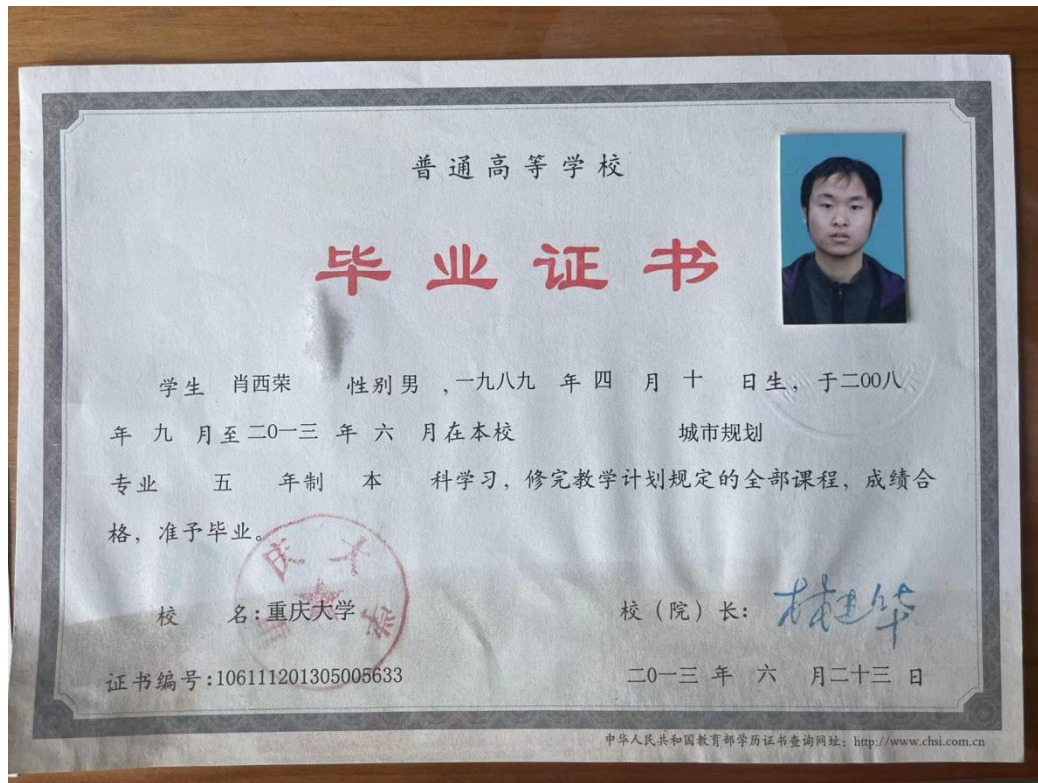 普通高等学校
毕业证书
学生 肖西荣 性别男 ,一九八九 年 四 月 十 日生,于二00八
年 九 月至二0一三 年 六 月在本校 城市规划
专业 五 年制 本 科学习,修完教学计划规定的全部课程,成绩合
格,准予毕业。
庆大学
校 名:重庆大学 校(院)长: 林建华
证书编号:106111201305005633 二0一三 年 六 月二十三 日
中华人民共和国教育部学历证书查询网址:http://www.chsi.com.cn